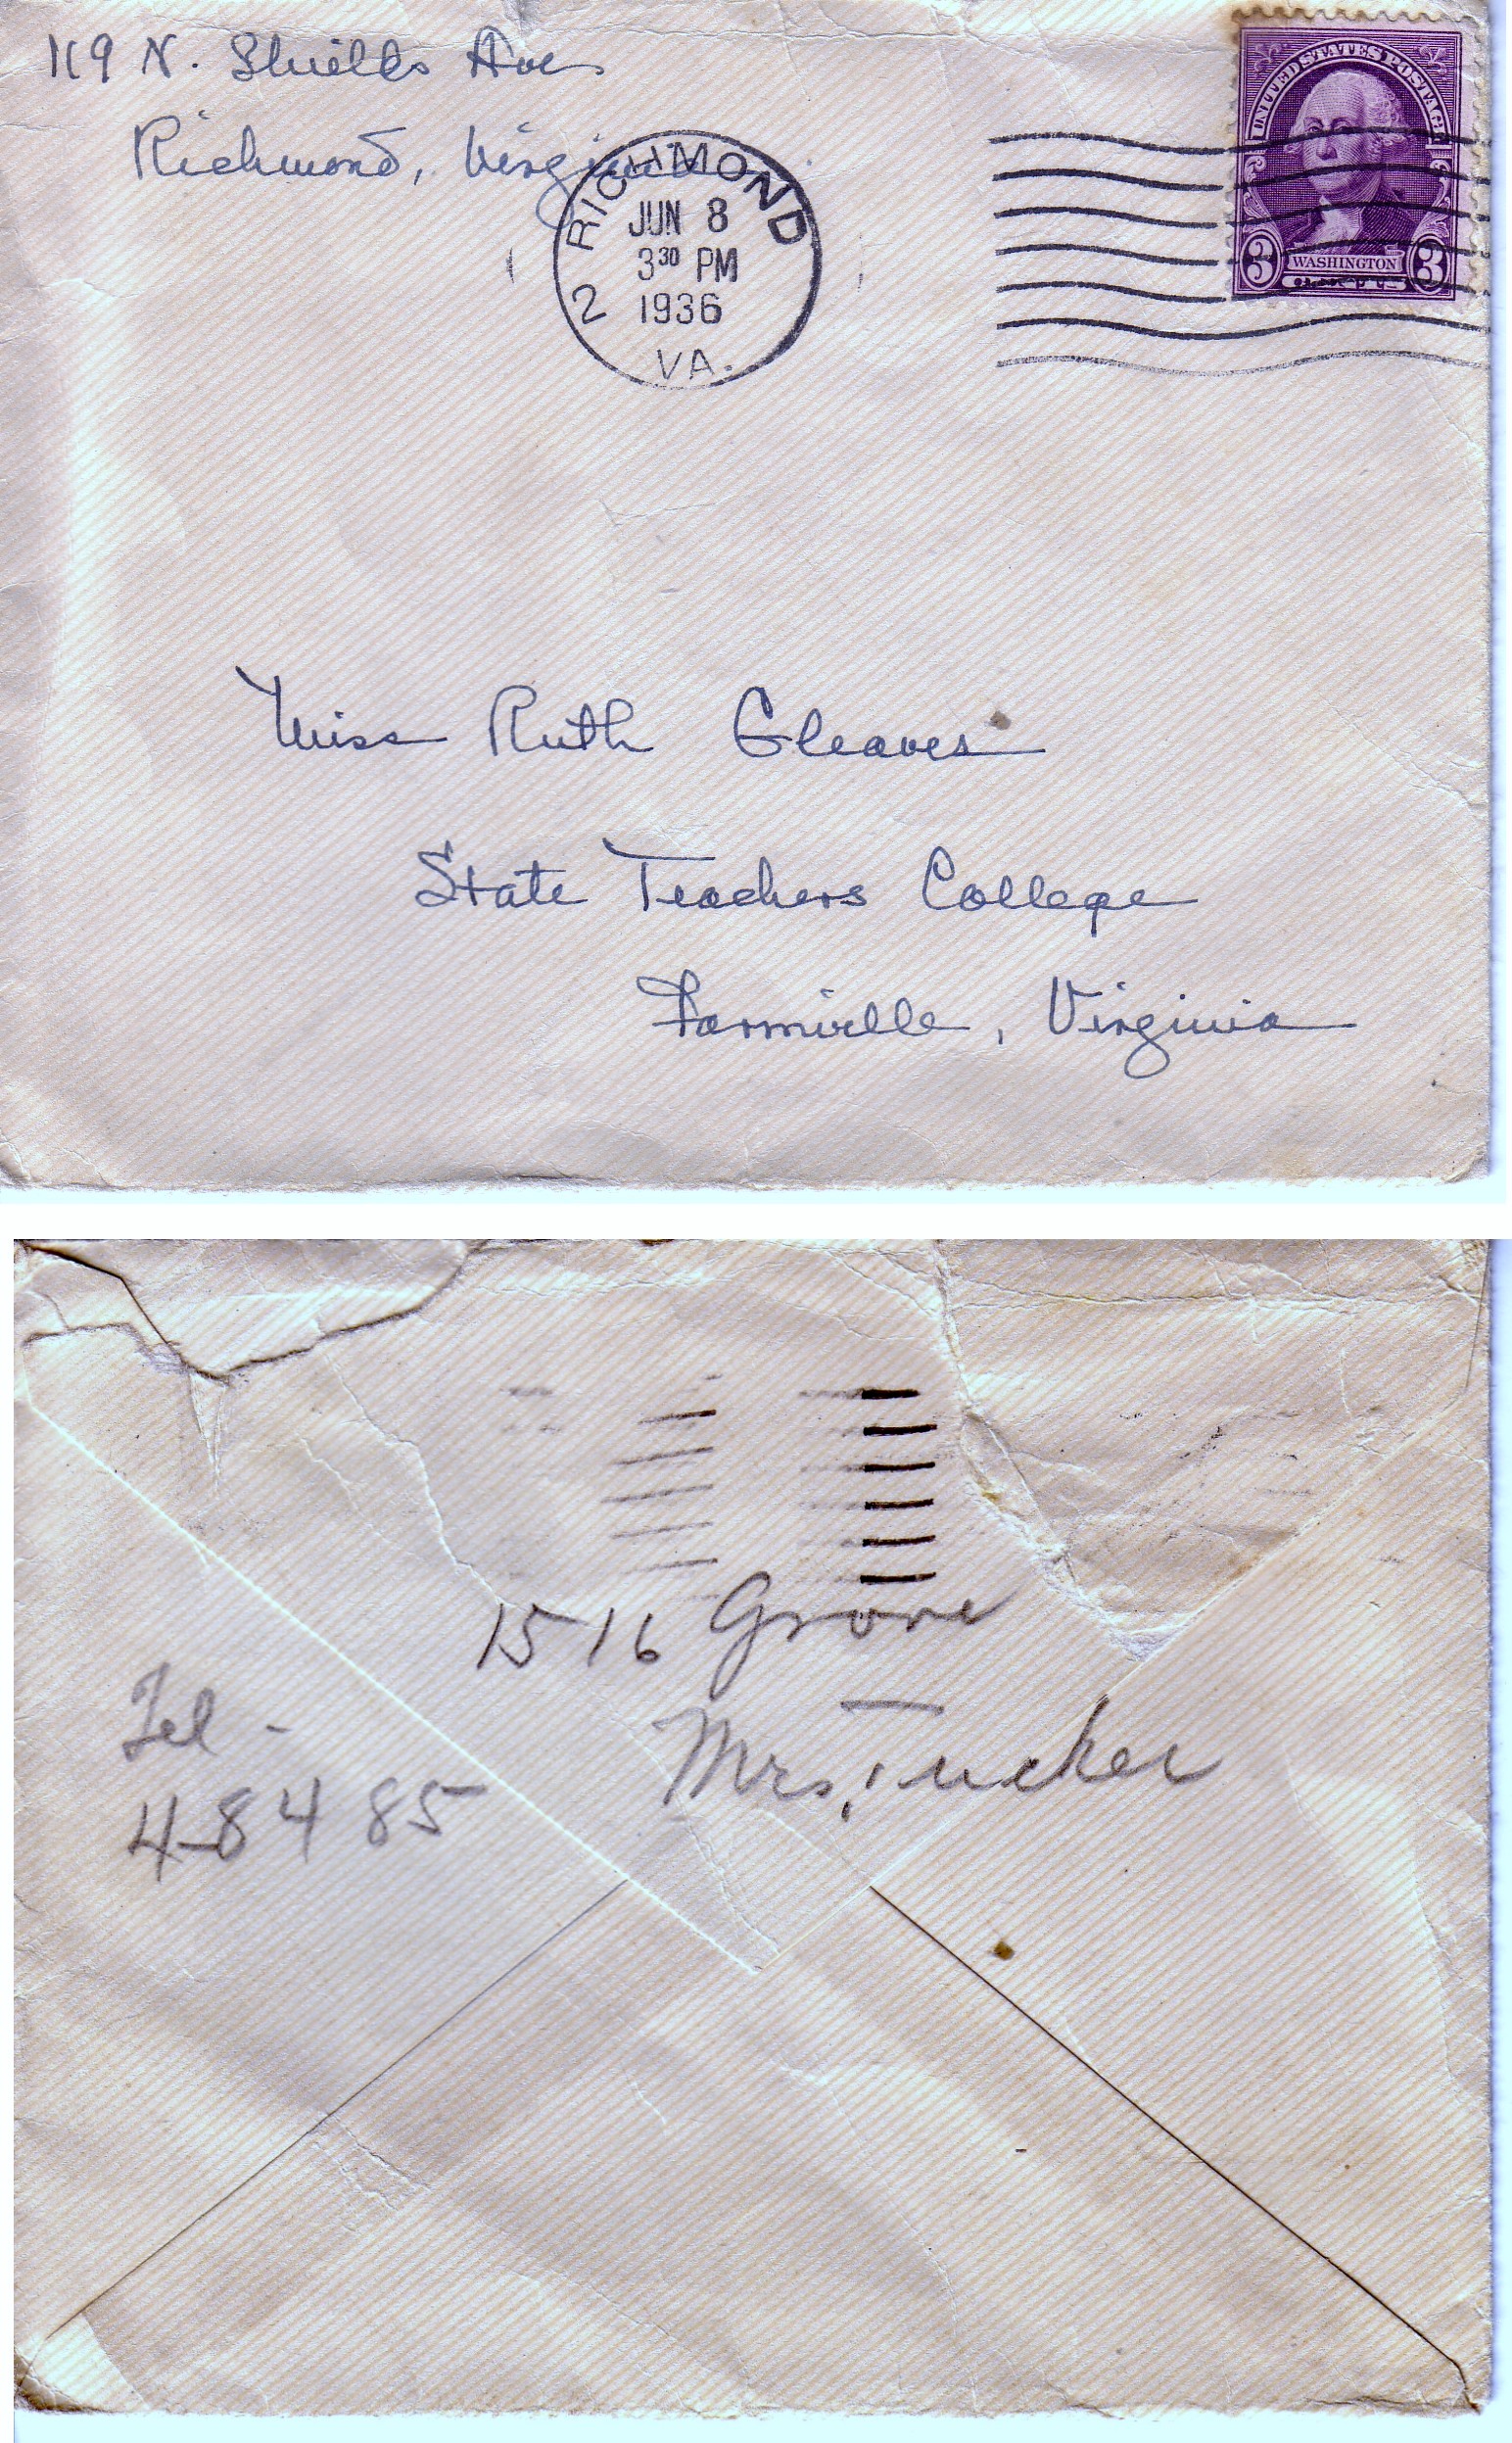 119 N. Shields Ave.
Richmond, Virginia
RICHMOND
JUN 8
3 30 PM
1936
2
VA.
UNITED STATES POSTAGE
3 WASHINGTON 3
Miss Ruth Gleaves
State Teachers College
Farmville, Virginia
1516 Grove
Tel -
Mrs. Tucker
4-8485